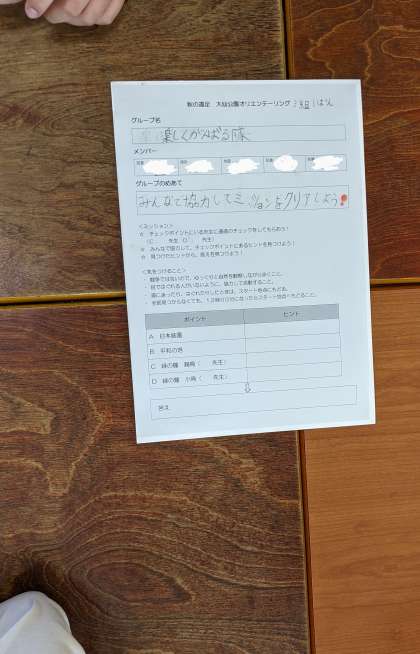 秋の遠足 大仙公園オリエンテーリング
グループ名
楽しくがんばる隊
メンバー
グループのめあて
みんなで協力してミッションをクリアしよう!
<ミッション>
☆ チェックポイントにいる先生に通過のチェックをしてもらおう!
(C 先生 D 先生)
☆ みんなで協力して、チェックポイントにあるヒントを見つけよう!
☆ 見つけたヒントから、答えを見つけよう!
<気をつけること>
・競争ではないので、ゆっくりと自然を観察しながら歩くこと。
・班ではぐれる人がいないように、協力して活動すること。
・道にまよったり、はぐれたりしたときは、スタート地点にもどる。
・全部見つからなくても、12時00分になったらスタート地点へもどること。
ポイント ヒント
A 日本庭園
B 平和の塔
C 緑の塀 先生)
D 緑の塀 先生)
答え